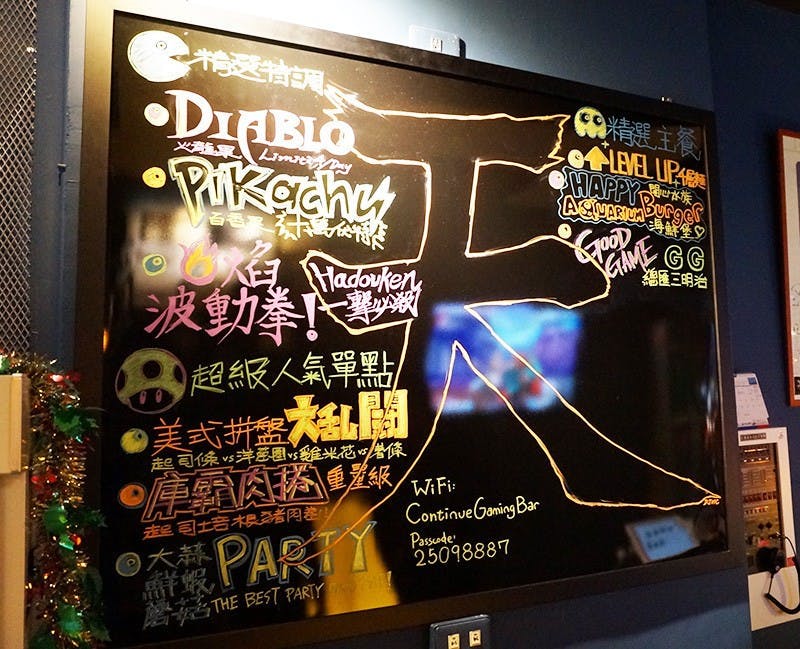 精選特調
DIABLO
火龍果 Limited Day
Pikachu
百香果
焰
波動拳!
Hadouken
一擊必殺
超級人氣單點
美式拼盤 大乱鬪
起司條 vs 洋蔥圈 vs 雞米花 vs 薯條
庫霸肉捲 重量級
起司士吉根豬肉卷!!
大蒜
鮮蝦
蘑菇
PARTY
THE BEST PARTY
天
WiFi:
ContinueGamingBar
Passcode:
25098887
精選主餐
LEVEL UP
HAPPY 開心水族
AQUARIUM Burger
海鮮堡
GOOD
GAME
GG
繪匯三明治